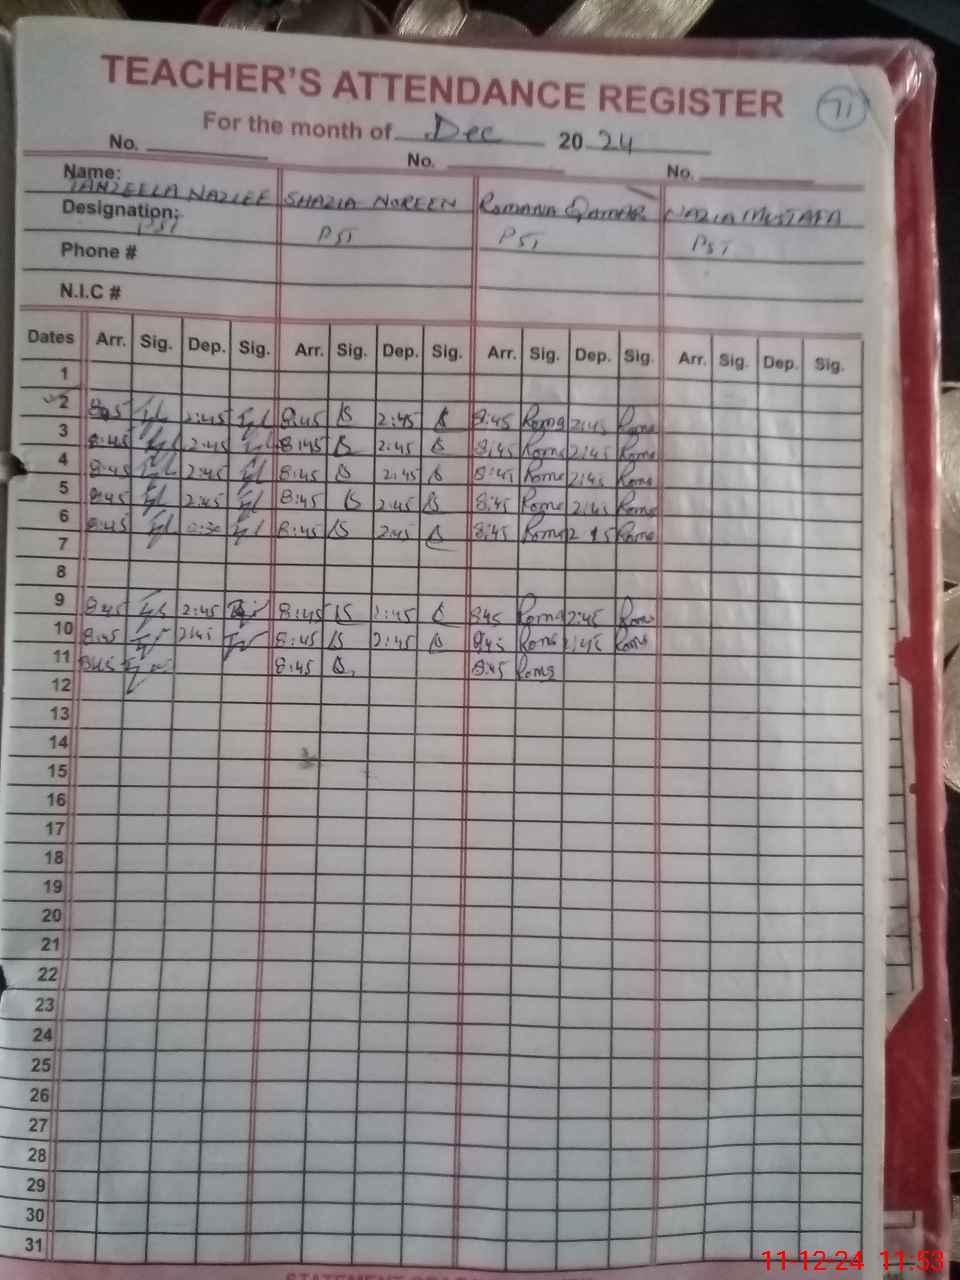 TEACHER'S ATTENDANCE REGISTER
71
For the month of Dec 2024
No. No. No.
Name: TANZEELA NAZLEE SHAZIA NOREEN ROMANA QAMAR NAZIA MUSTAFA
Designation: PST PST PST PST
Phone #
N.I.C #
Dates Arr. Sig. Dep. Sig. Arr. Sig. Dep. Sig. Arr. Sig. Dep. Sig. Arr. Sig. Dep. Sig.
1
2 2:45 8:45 2:45 8:45 Roma 2:45 Roma
3 8:45 2:45 8:45 2:45 8:45 Roma 2:45 Roma
4 8:45 2:45 8:45 2:45 8:45 Roma 2:45 Roma
5 8:45 2:45 8:45 2:45 8:45 Roma 2:45 Roma
6 8:45 8:45 2:45 8:45 Roma 2 15 Roma
7
8
9 8:45 2:45 8:45 2:45 845 Roma 2:45 Roma
10 8:45 2:45 8:45 2:45 845 Roma 2:45 Roma
11 8:45 8:45 8:45 Roma
12
13
14
15
16
17
18
19
20
21
22
23
24
25
26
27
28
29
30
31
11-12-24 11:53